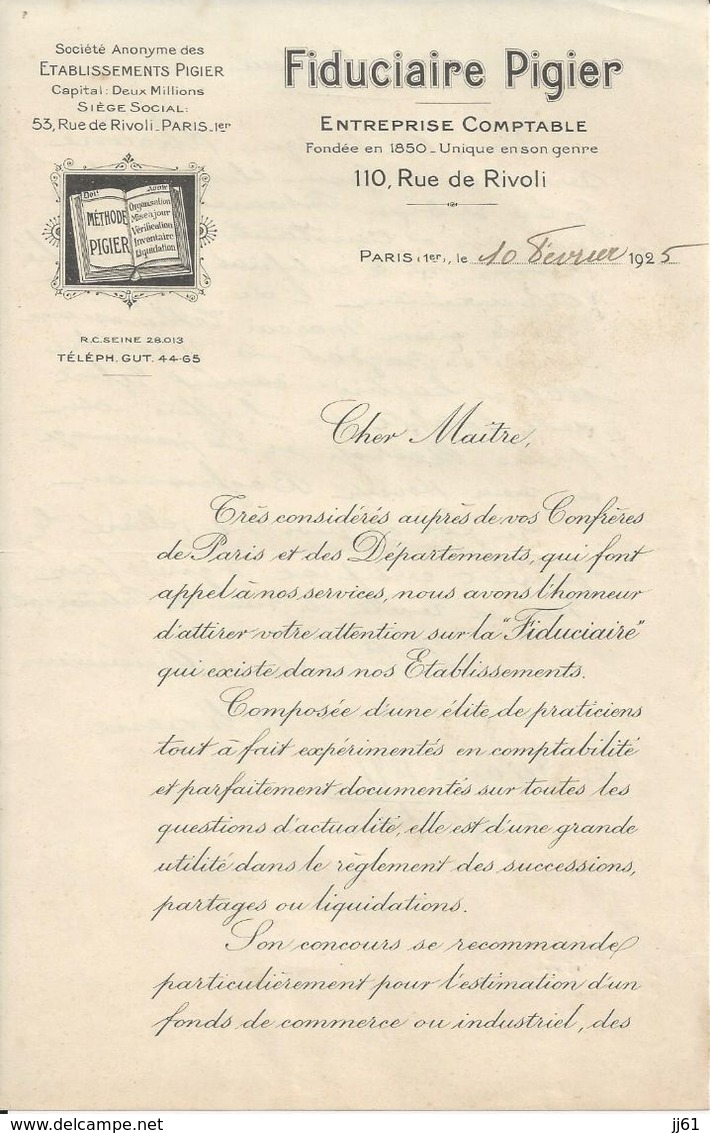 Société Anonyme des
ETABLISSEMENTS PIGIER
Capital: Deux Millions
SIÈGE SOCIAL:
53, Rue de Rivoli_PARIS_1er
Doit Avoir
MÉTHODE
PIGIER
Organisation
Mise à jour
Vérification
Inventaire
Liquidation
R.C. SEINE 28.013
TÉLÉPH. GUT. 44-65
Fiduciaire Pigier
ENTREPRISE COMPTABLE
Fondée en 1850_Unique en son genre
110, Rue de Rivoli
PARIS (1er), le 10 Février 1925
Cher Maître,
Très considérés auprès de vos Confrères
de Paris et des Départements, qui font
appel à nos services, nous avons l'honneur
d'attirer votre attention sur la "Fiduciaire"
qui existe dans nos Etablissements.
Composée d'une élite de praticiens
tout à fait expérimentés en comptabilité
et parfaitement documentés sur toutes les
questions d'actualité, elle est d'une grande
utilité dans le règlement des successions,
partages ou liquidations.
Son concours se recommande
particulièrement pour l'estimation d'un
fonds de commerce ou industriel, des
jj61